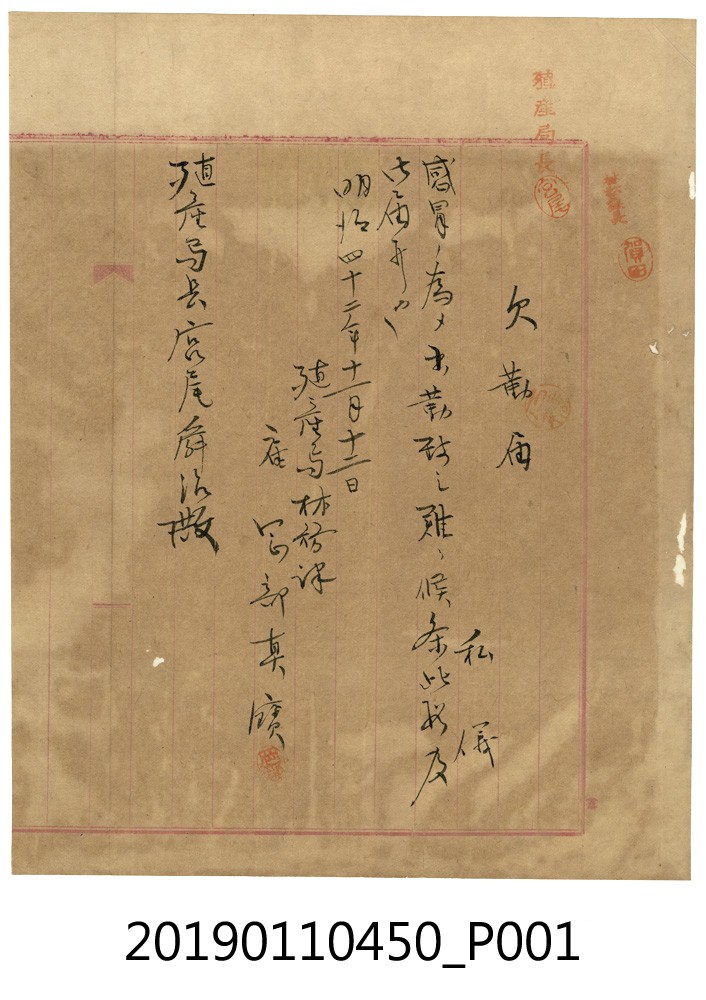 殖産局長
宮尾
賀田
欠勤届
私儀
感冒ノ為メ出勤致シ難ク候条此段及
御届候也
明治四十二年十一月十二日
殖産局林務課
雇 岡部真
殖産局長宮尾舜治殿
20190110450_P001